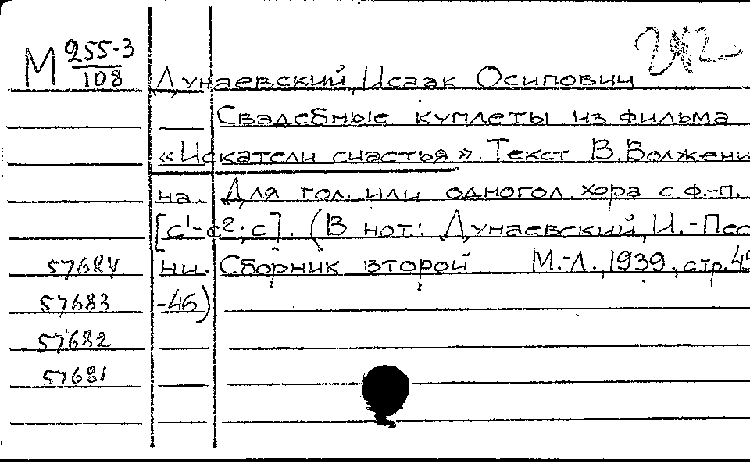 М 255-3
108
Дунаевский, Исаак Осипович
Свадебные куплеты из фильма
«Искатели счастья». Текст В. Волжени
на. Для гол. или одногол. хора с ф-п.
[c¹-c²; c]. (В нот: Дунаевский, И. - Пес
ни. Сборник второй М.-Л., 1939, стр. 45
-46)
57684
57683
57682
57681